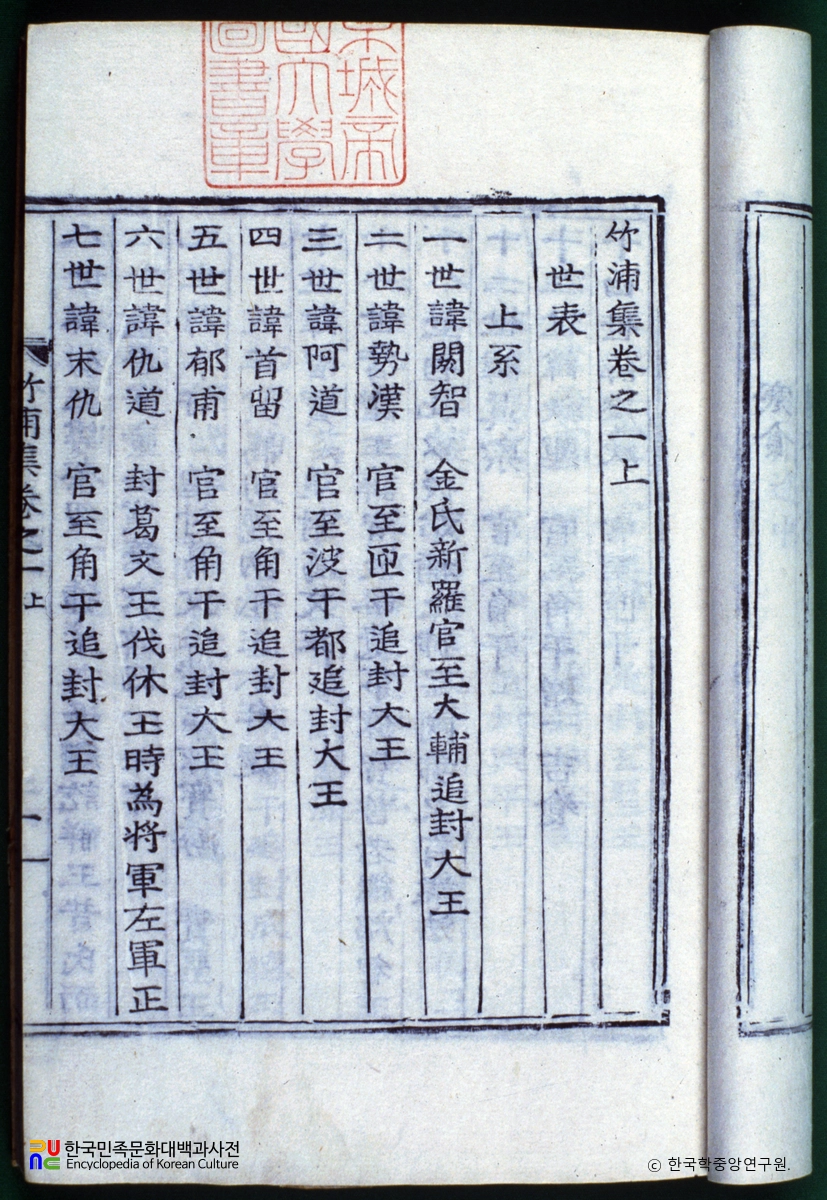 城帝
國大學
圖書章
竹浦集卷之一上
世表
上系
一世諱閼智 金氏新羅官至大輔追封大王
二世諱勢漢 官至匝干追封大王
三世諱阿道 官至波干都追封大王
四世諱首留 官至角干追封大王
五世諱郁甫 官至角干追封大王
六世諱仇道 封葛文王伐休王時為將軍左軍正
七世諱末仇 官至角干追封大王
竹浦集卷之一上
一
한국민족문화대백과사전
Encyclopedia of Korean Culture
ⓒ 한국학중앙연구원.